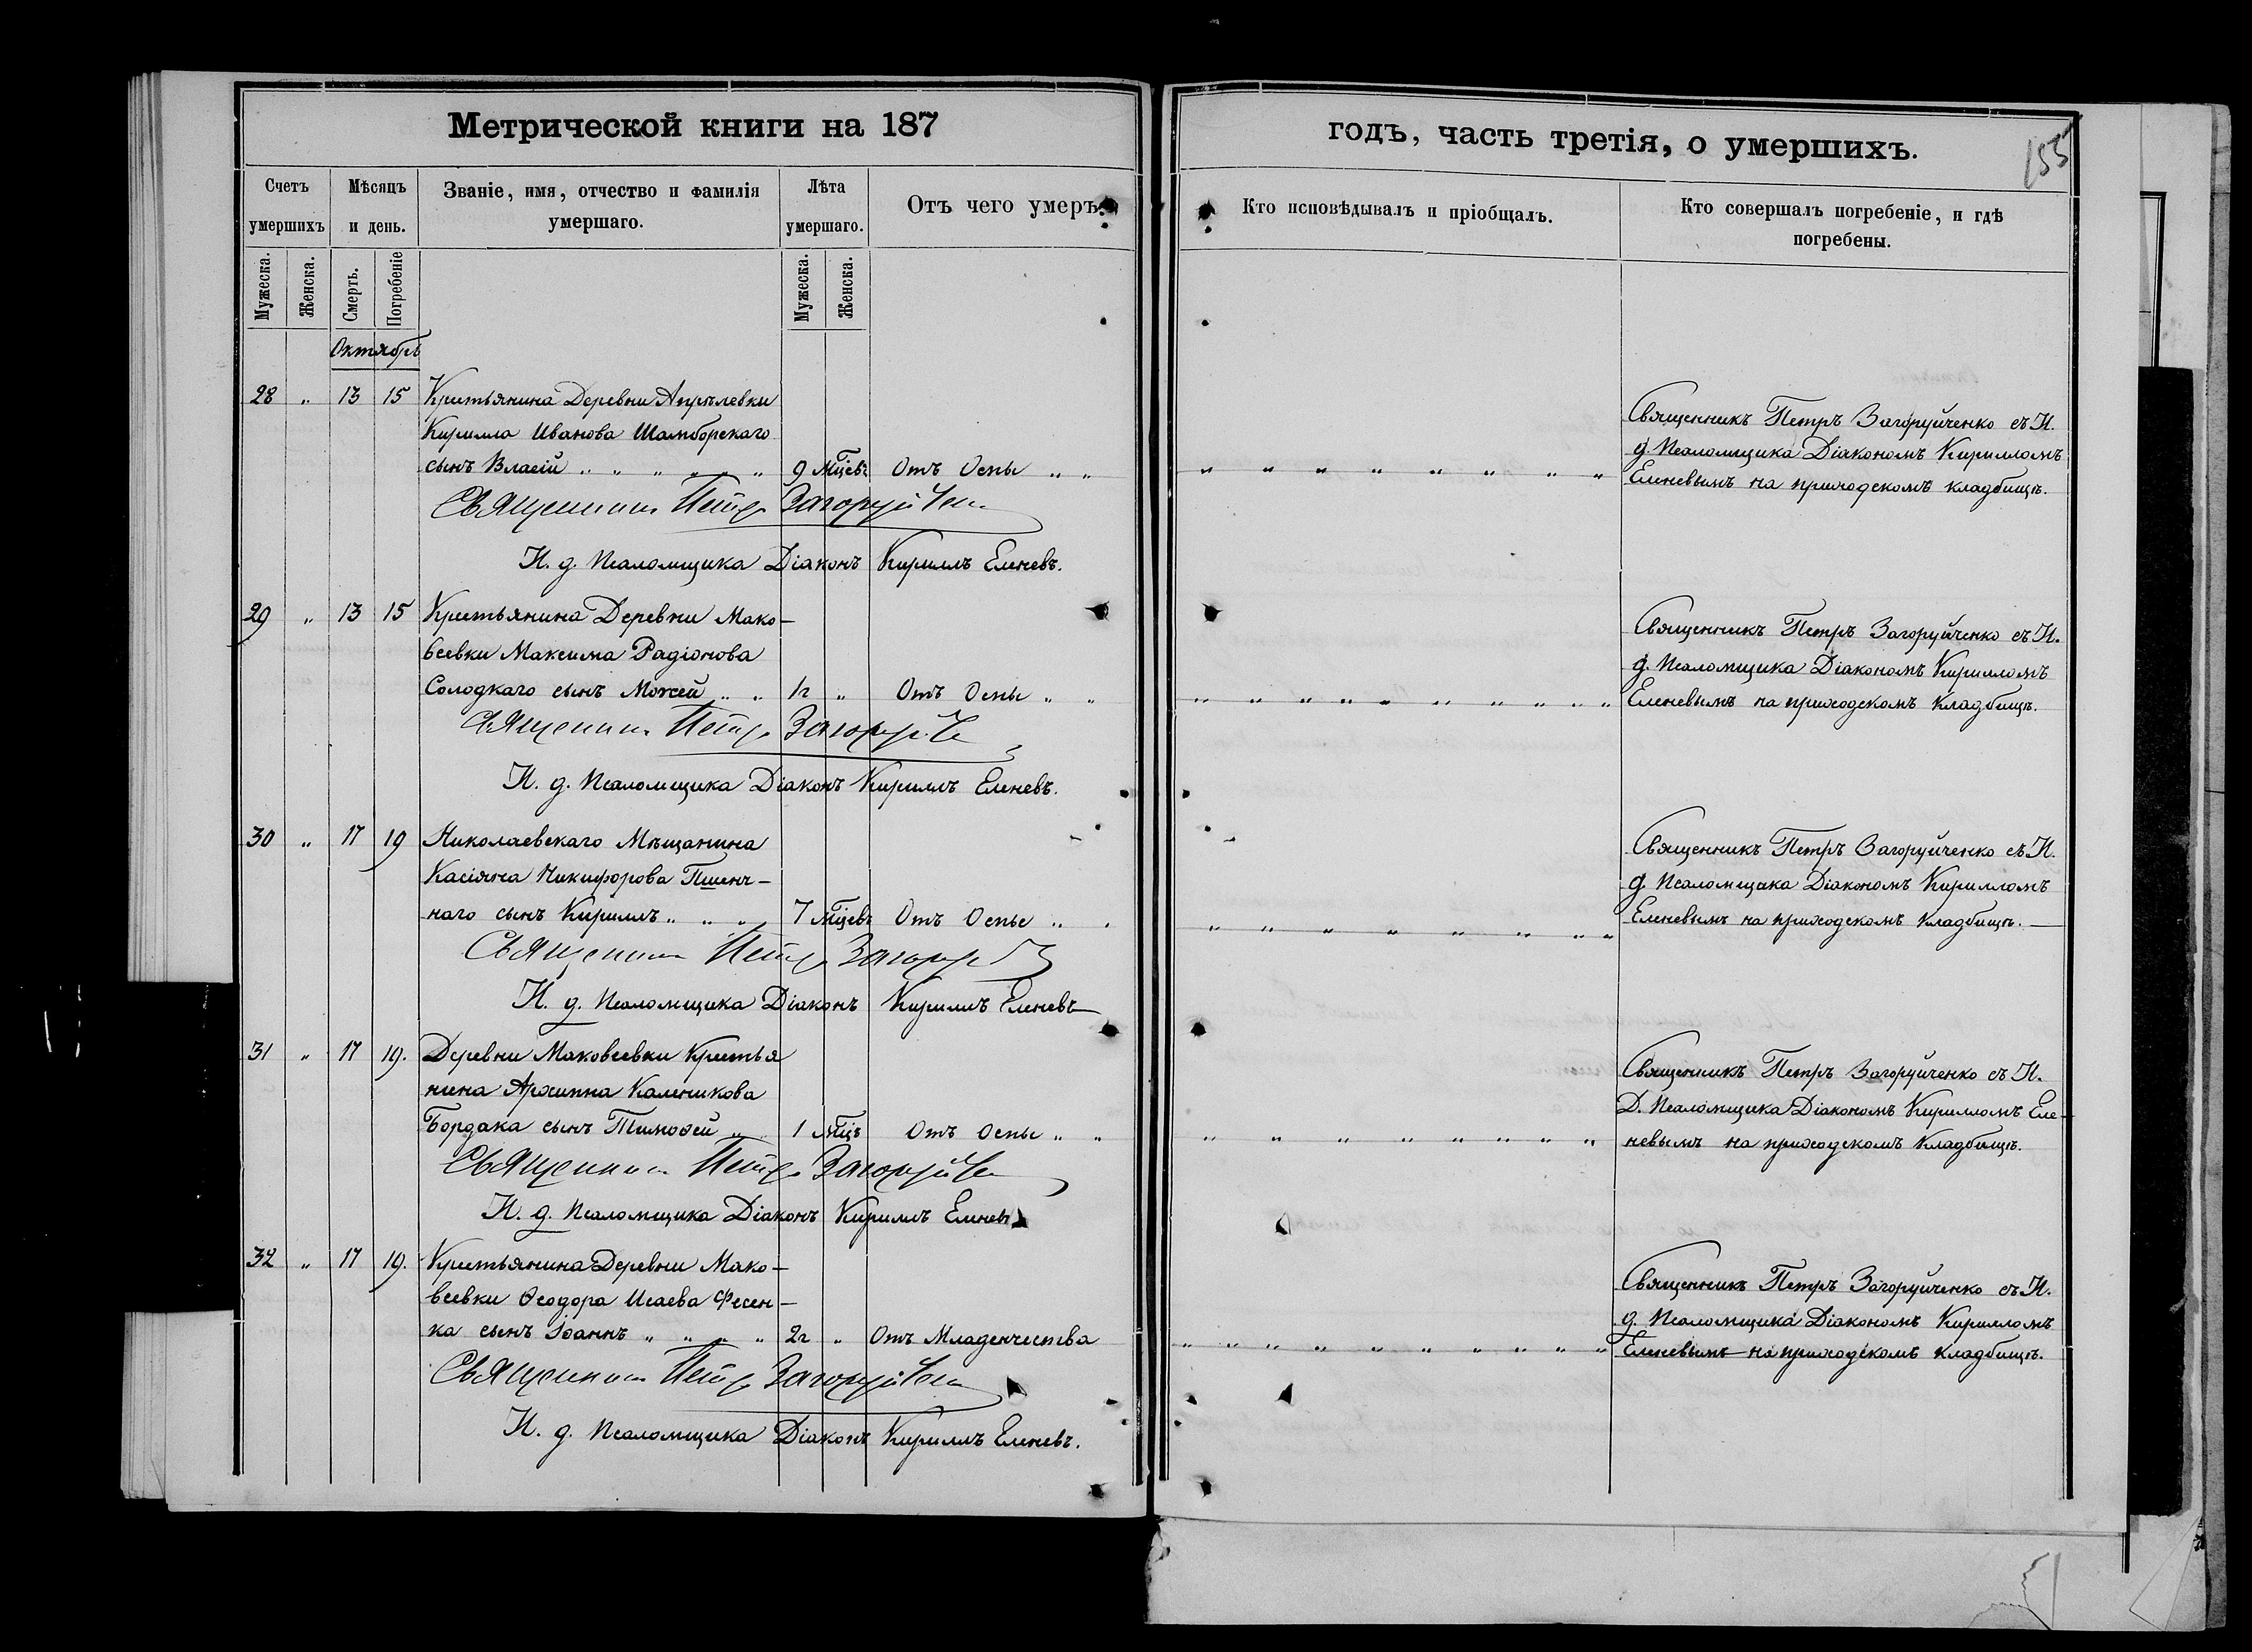 Метрической книги на 187
годъ, часть третія, о умершихъ.
155
Счетъ умершихъ
Мѣсяцъ и день.
Званіе, имя, отчество и фамилія умершаго.
Лѣта умершаго.
Отъ чего умеръ.
Кто исповѣдывалъ и пріобщалъ.
Кто совершалъ погребеніе, и гдѣ погребены.
Мужеска.
Женска.
Смерть.
Погребеніе
Мужеска.
Женска.
Октябрь
28 " 13 15 Крестьянина Деревни Апрѣлевки
Кирилла Иванова Шамборскаго
сынъ Власій " " " " " " 9 мцевъ Отъ Оспы " "
Священникъ Петръ Загоруйченко
И. д. Псаломщика Діаконъ Кириллъ Еленевъ.
Священникъ Петръ Загоруйченко съ И.
д. Псаломщика Діакономъ Кирилломъ
Еленевымъ на приходскомъ кладбищѣ.
29 " 13 15 Крестьянина Деревни Мако-
веевки Максима Радіонова
Солодкаго сынъ Моисей " " 1г " Отъ Оспы " "
Священникъ Петръ Загоруйче
И. д. Псаломщика Діаконъ Кириллъ Еленевъ.
Священникъ Петръ Загоруйченко съ И.
д. Псаломщика Діакономъ Кирилломъ
Еленевымъ на приходскомъ кладбищѣ.
30 " 17 19 Николаевскаго Мѣщанина
Касіяна Никифорова Пшенч-
наго сынъ Кириллъ " " " 7 мцевъ Отъ Оспы " "
Священникъ Петръ Загоруй
И. д. Псаломщика Діаконъ Кириллъ Еленевъ
Священникъ Петръ Загоруйченко съ И.
д. Псаломщика Діакономъ Кирилломъ
Еленевымъ на приходскомъ кладбищѣ.
31 " 17 19. Деревни Маковеевки Крестья
нина Архиппа Каленикова
Бордака сынъ Тимоѳей " " 1 мцъ Отъ Оспы " "
Священникъ Петръ Загоруйче
И. д. Псаломщика Діаконъ Кириллъ Еленевъ
Священникъ Петръ Загоруйченко съ И.
Д. Псаломщика Діакономъ Кирилломъ Еле-
невымъ на приходскомъ кладбищѣ.
32 " 17 19. Крестьянина Деревни Мако-
веевки Ѳеодора Исаева Фесен-
ка сынъ Іоаннъ " " " " 2г " Отъ Младенчества
Священникъ Петръ Загоруйченко
И. д. Псаломщика Діаконъ Кириллъ Еленевъ.
Священникъ Петръ Загоруйченко съ И.
д. Псаломщика Діакономъ Кирилломъ
Еленевымъ на приходскомъ кладбищѣ.